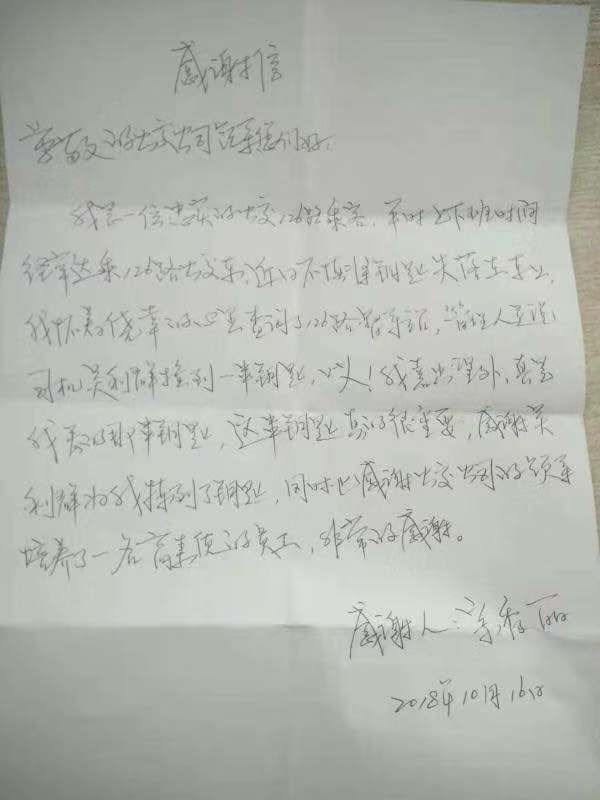 感谢信
尊敬的公交公司领导您们好,
我是一位忠实的公交126路乘客,平时上下班时间
经常坐乘126路公交车,近日不慎将钥匙失落在车上,
我怀着侥幸的心里查询了126路管车站,管理人员说
司机吴利群捡到一串钥匙,以!我喜出望外,真是
我丢的那串钥匙,这串钥匙真的很重要,感谢吴
利群为我捡到了钥匙,同时也感谢公交公司的领导
培养了一名高素质的员工,非常的感谢。
感谢人:
2018年10月16日